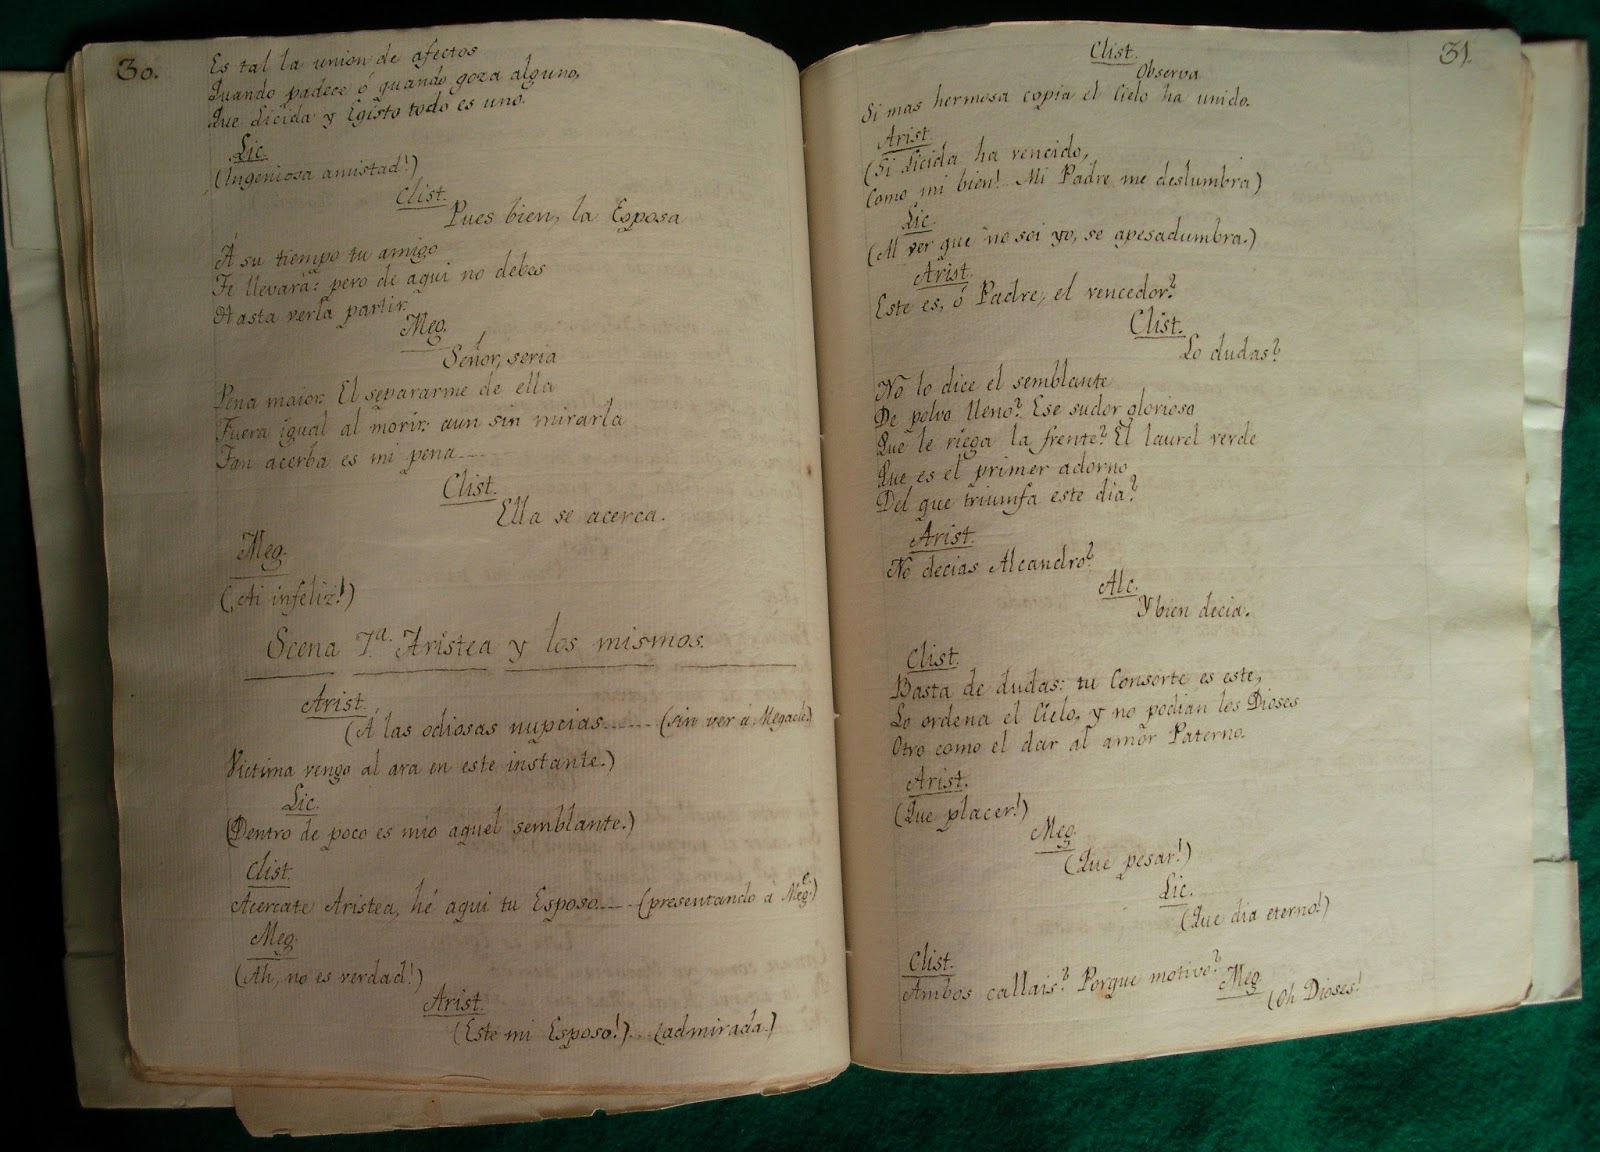 30.
Es tal la union de afectos
Quando padece ó quando goza alguno,
Que Licida y Egisto todo es uno.
Lic.
(Ingeniosa amistad!)
Clist.
Pues bien, la Esposa
Á su tiempo tu amigo
Te llevará: pero de aqui no debes
Hasta verla partir.
Meg.
Señor, seria
Pena maior. El separarme de ella
Fuera igual al morir: aun sin mirarla
Tan acerba es mi pena....
Clist.
Ella se acerca.
Meg.
(Ai infeliz!)
Scena 7.ª Aristea y los mismos.
Arist.
(Á las odiosas nupcias...... (sin ver á Megacle)
Victima vengo al ara en este instante.)
Lic.
(Dentro de poco es mio aquel semblante.)
Clist.
Acercate Aristea, hé aqui tu Esposo.... (presentando á Meg.e)
Meg.
(Ah, no es verdad!)
Arist.
(Este mi Esposo!)... (admirada.)
31.
Clist.
Observa
Si mas hermosa copia el Cielo ha unido.
Arist.
(Si Licida ha vencido,
Como mi bien!.. Mi Padre me deslumbra)
Lic.
(Al ver que no soi yo, se apesadumbra.)
Arist.
Este es, ó Padre, el vencedor?
Clist.
Lo dudas?
No lo dice el semblante
De polvo lleno? Ese sudor glorioso
Que le riega la frente? El laurel verde
Que es el primer adorno
Del que triumfa este dia?
Arist.
No decias Alcandro?
Alc.
Y bien decia.
Clist.
Basta de dudas: tu Consorte es este,
Lo ordena el Cielo, y no podian los Dioses
Otro como el dar al amor Paterno.
Arist.
(Que placer!)
Meg.
(Que pesar!)
Lic.
(Que dia eterno!)
Clist.
Ambos callais? Porque motivo?
Meg
(Oh Dioses!